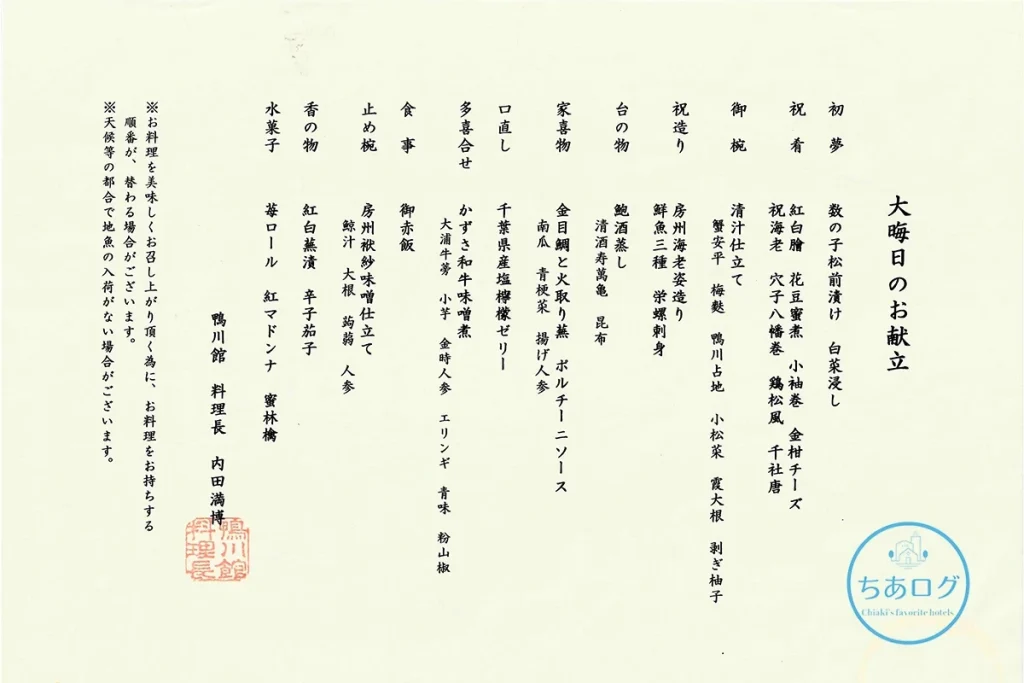 大晦日のお献立
初夢 数の子松前漬け 白菜浸し
祝肴 紅白膾 花豆蜜煮 小袖巻 金柑チーズ
祝海老 穴子八幡巻 鶏松風 千社唐
御椀 清汁仕立て
蟹安平 梅麩 鴨川占地 小松菜 霞大根 剥ぎ柚子
祝造り 房州海老姿造り
鮮魚三種 栄螺刺身
台の物 鮑酒蒸し
清酒寿萬亀 昆布
家喜物 金目鯛と火取り蕪 ポルチーニソース
南瓜 青梗菜 揚げ人参
口直し 千葉県産塩檸檬ゼリー
多喜合せ かずさ和牛味噌煮
大浦牛蒡 小芋 金時人参 エリンギ 青味 粉山椒
食事 御赤飯
止め椀 房州袱紗味噌仕立て
鯨汁 大根 蒟蒻 人参
香の物 紅白蕪漬 辛子茄子
水菓子 苺ロール 紅マドンナ 蜜林檎
鴨川館 料理長 内田満博
鴨川館料理長
※お料理を美味しくお召し上がり頂く為に、お料理をお持ちする
順番が、替わる場合がございます。
※天候等の都合で地魚の入荷がない場合がございます。
ちあログ
Chiaki's favorite hotels